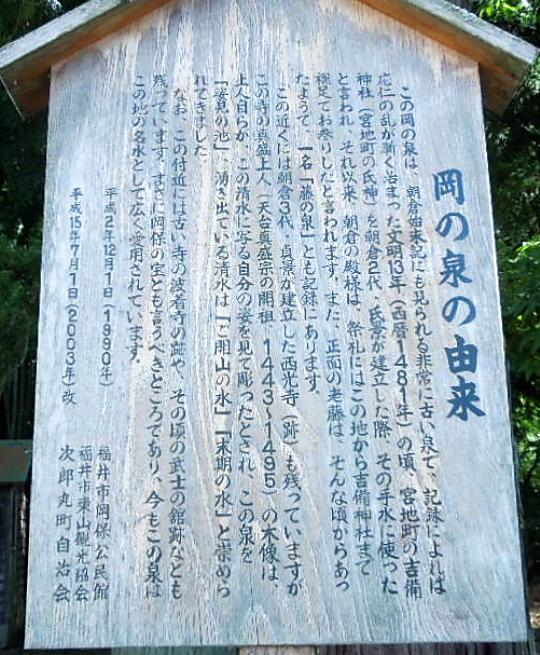 岡の泉の由来
この岡の泉は、朝倉始末記にも見られる非常に古い泉で、記録によれば
応仁の乱が漸く治まった文明13年(西暦1481年)の頃、宮地町の吉備
神社(宮地町の氏神)を朝倉2代、氏景が建立した際、その手水に使った
と言われ、それ以来、朝倉の殿様は、祭礼にはこの地から吉備神社まで
裸足でお参りしたと言われます。また、正面の老藤は、そんな頃からあっ
たようで、一名「藤の泉」とも記録にあります。
この近くには朝倉3代、貞景が建立した西光寺(跡)も残っていますが
この寺の真盛上人(天台真盛宗の開祖、1443~1495)の木像は、
上人自らが、この清水に写る自分の姿を見て彫ったとされ、この泉を
「姿見の池」、湧き出ている清水は「ご開山の水」「末期の水」と崇めら
れてきました。
なお、この付近には古い寺の波着寺の跡や、その頃の武士の館跡なども
残っています。まさに岡保の宝とも言うべきところであり、今もこの泉は
この地の名水として広く愛用されています。
平成2年12月1日(1990年)
平成15年7月1日(2003年)改
福井市岡保公民館
福井市東山観光協会
次郎丸町自治会